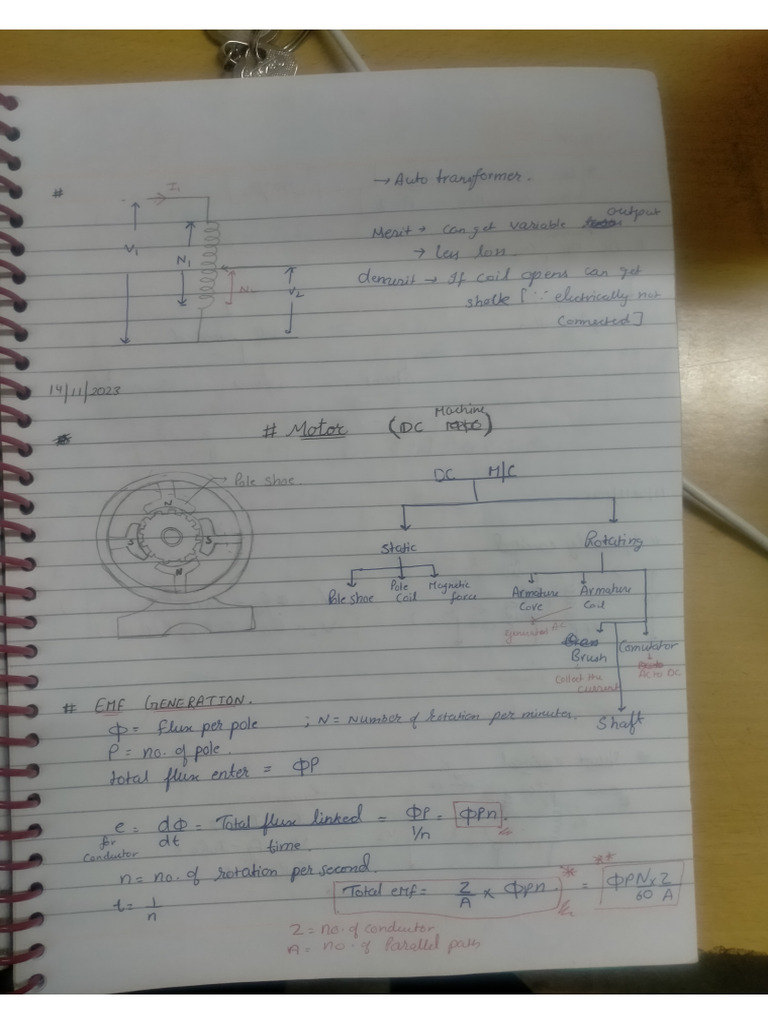 #
I₁
→ Auto transformer.
V₁
N₁
N₂
V₂
Merit → can get variable output
→ less loss.
demerit → If coil opens can get
[∵ electrically not
connected]
14/11/2023
# Motor (DC Machine)
Pole shoe.
N
S
S
N
DC M/C
Static
Rotating
Pole shoe
Pole coil
Magnetic force
Armature core
Armature coil
generates AC
Brush
Comutator
Collect the current
AC to DC
Shaft
# EMF GENERATION.
Φ = flux per pole ; N = Number of rotation per minutes.
P = no. of pole.
total flux enter = ΦP
e = dΦ/dt = Total flux linked/time. = ΦP/1/n = ΦPn.
for conductor
n = no. of rotation per second.
t = 1/n
Total emf = Z/A × ΦPn. * = ** ΦPN/60 × Z/A
Z = no. of conductor
A = no. of Parallel path